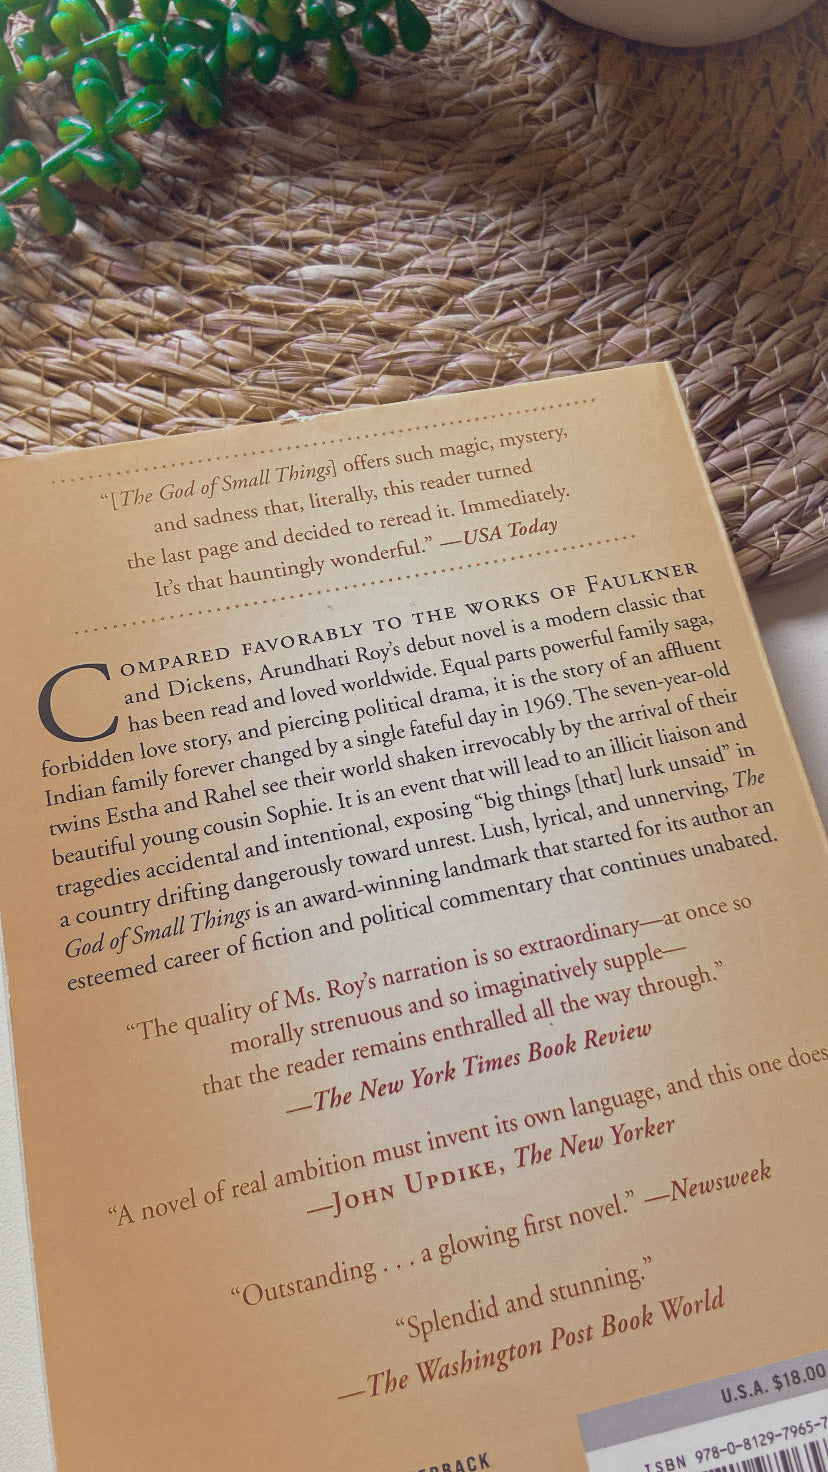 “[The God of Small Things] offers such magic, mystery,
and sadness that, literally, this reader turned
the last page and decided to reread it. Immediately.
It’s that hauntingly wonderful.” —USA Today
COMPARED FAVORABLY TO THE WORKS OF FAULKNER
and Dickens, Arundhati Roy’s debut novel is a modern classic that
has been read and loved worldwide. Equal parts powerful family saga,
forbidden love story, and piercing political drama, it is the story of an affluent
Indian family forever changed by a single fateful day in 1969. The seven-year-old
twins Estha and Rahel see their world shaken irrevocably by the arrival of their
beautiful young cousin Sophie. It is an event that will lead to an illicit liaison and
tragedies accidental and intentional, exposing “big things [that] lurk unsaid” in
a country drifting dangerously toward unrest. Lush, lyrical, and unnerving, The
God of Small Things is an award-winning landmark that started for its author an
esteemed career of fiction and political commentary that continues unabated.
“The quality of Ms. Roy’s narration is so extraordinary—at once so
morally strenuous and so imaginatively supple—
that the reader remains enthralled all the way through.”
—The New York Times Book Review
“A novel of real ambition must invent its own language, and this one does
—JOHN UPDIKE, The New Yorker
“Outstanding . . . a glowing first novel.” —Newsweek
“Splendid and stunning.”
—The Washington Post Book World
U.S.A. $18.00
ISBN 978-0-8129-7965-7